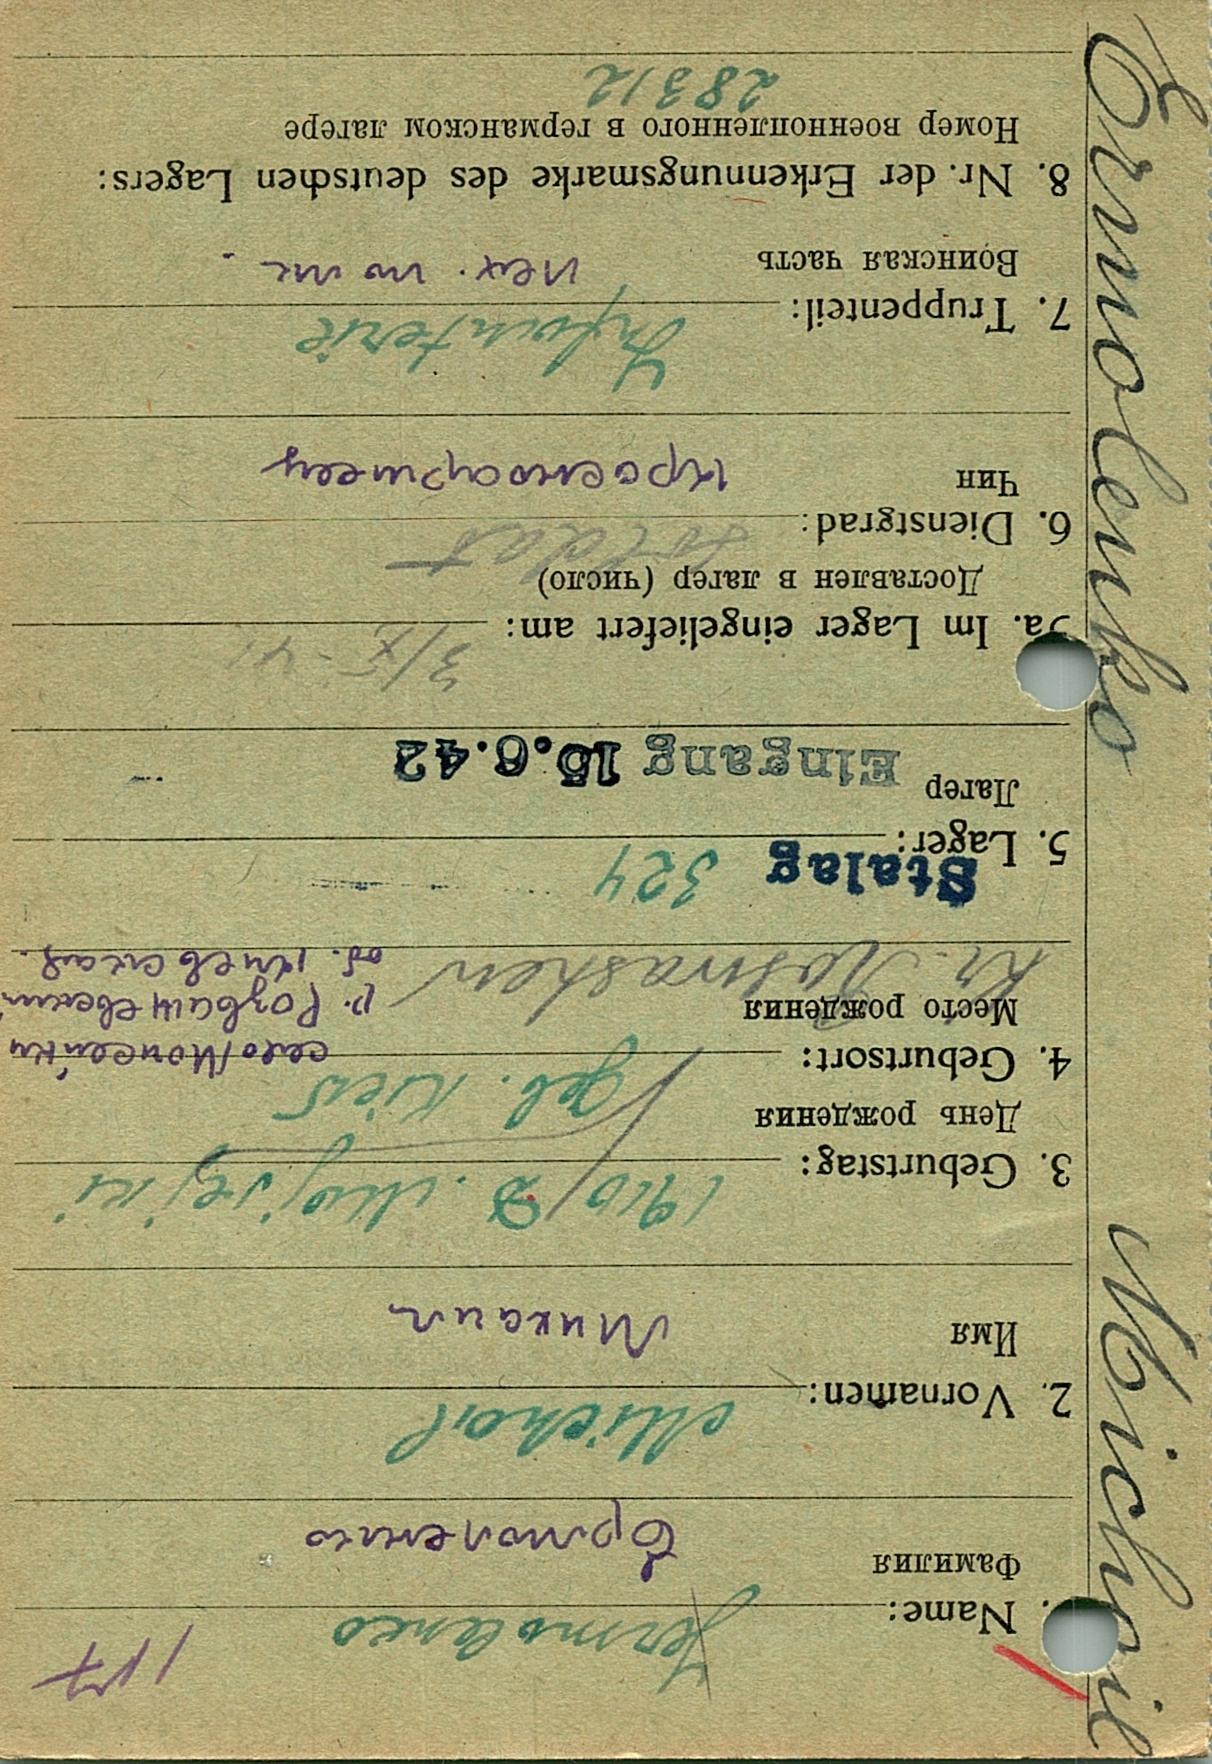 117
1. Name: Jermolenco
Фамилия Ермоленко
2. Vornamen: Michail
Имя Михаил
3. Geburtstag: 1910 D. Mojsejki
День рождения
4. Geburtsort: geb. Kiew
село Моисейки
Место рождения Kr. Roswashen
р. Розважевский
об. Киевская.
5. Lager: Stalag 324
Лагер Eingang 15.6.42
5a. Im Lager eingeliefert am: 3/X-41
Доставлен в лагер (число)
6. Dienstgrad: Soldat
Чин Красноармеец
7. Truppenteil: Infanterie
Воинская часть пех.
8. Nr. der Erkennungsmarke des deutschen Lagers:
Номер военнопленного в германском лагере
28312
Ermolenko Michail